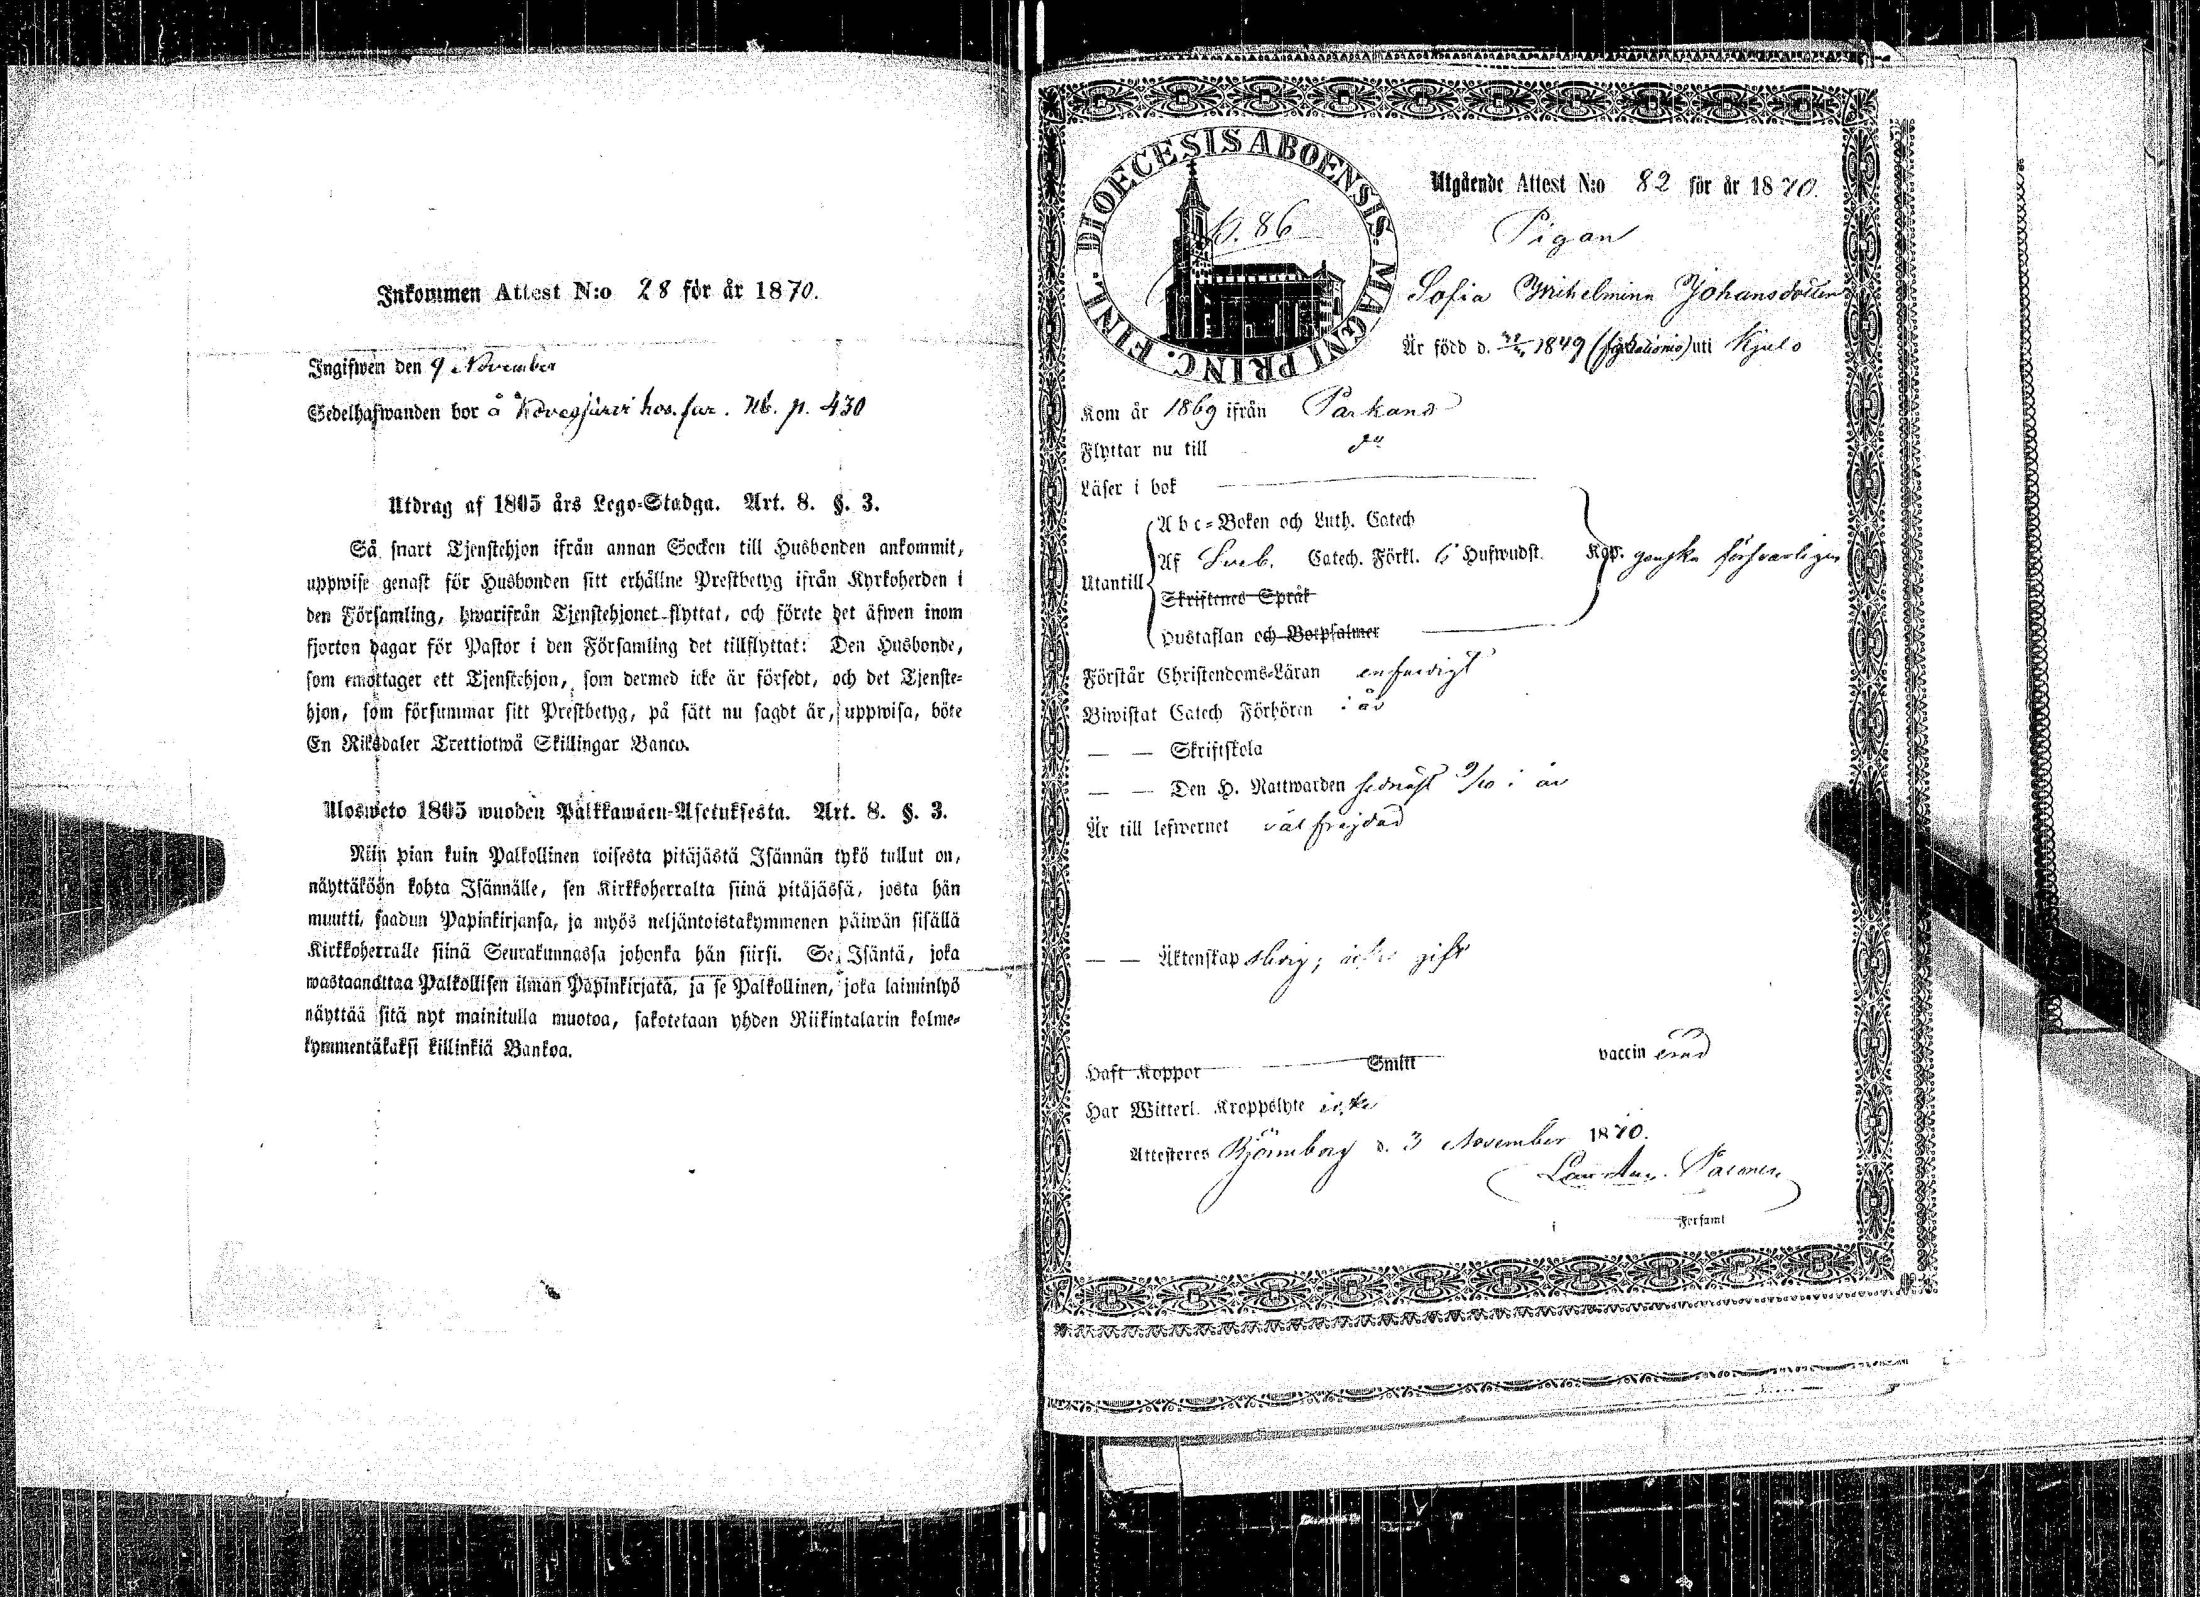 Inkommen Attest N:o 28 för år 1870.
Ingifwen den 9 November
Sedelhafwanden bor å hos far. Kb. p. 430
Utdrag af 1805 års Lego-Stadga. Art. 8. §. 3.
Så snart Tjenstehjon ifrån annan Socken till Husbonden ankommit,
uppwise genast för Husbonden sitt erhållne Prestbetyg ifrån Kyrkoherden i
den Församling, hwarifrån Tjenstehjonet flyttat, och förete det äfwen inom
fjorton dagar för Pastor i den Församling det tillflyttat: Den Husbonde,
som emottager ett Tjenstehjon, som dermed icke är försedt, och det Tjenste-
hjon, som försummar sitt Prestbetyg, på sätt nu sagdt är, uppwisa, böte
En Riksdaler Trettiotwå Skillingar Banco.
Ulosweto 1805 wuoden Palkkawäen-Asetuksesta. Art. 8. §. 3.
Niin pian kuin Palkollinen toisesta pitäjästä Isännän tykö tullut on,
näyttäköön kohta Isännälle, sen Kirkkoherralta siinä pitäjässä, josta hän
muutti, saadun Papinkirjansa, ja myös neljäntoistakymmenen päiwän sisällä
Kirkkoherralle siinä Seurakunnassa johonka hän siirsi. Se Isäntä, joka
wastaanottaa Palkollisen ilman Papinkirjatä, ja se Palkollinen, joka laiminlyö
näyttää sitä nyt mainitulla muotoa, sakotetaan yhden Riikintalarin kolme-
kymmentäkaksi killinkiä Bankoa.
DIOECESIS ABOENSIS. MAGNI PRINC. FINL.
p. 86
Utgående Attest N:o 82 för år 1870.
Pigan
Sofia Wilhelmina Johansdotter
Är född d. 1849 uti Kjulo
Kom år 1869 ifrån Parkano
Flyttar nu till
Läser i bok
Abc-Boken och Luth. Catech
Af Sveb. Catech. Förkl. 6 Hufwudst. Kap. ganska försvarligen
Utantill
Skriftenes Språk
Hustaflan och Botpsalmer
Förstår Christendoms-Läran enfaldigt
Biwistat Catech Förhören i år
— — Skriftskola
— — Den H. Nattwarden sednast 9/10 i år
Är till lefwernet väl frejdad
— — Äktenskap ledig; icke gift
Haft Koppor Smitt vaccin erad
Har Witterl. Kroppslyte icke
Attesteres Björneborg d. 3 November 1870.
i Församl